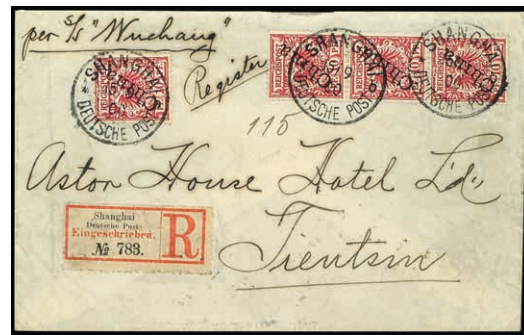 per S/S "Wuchang"
Register
SHANGHAI
DEUTSCHE POST
SHANGHAI
DEUTSCHE POST
SHANGHAI
DEUTSCHE POST
REICHSPOST
China
115
Aston House Hotel Ld.,
Tientsin
Shanghai
Deutsche Post
Eingeschrieben.
№ 783.
R